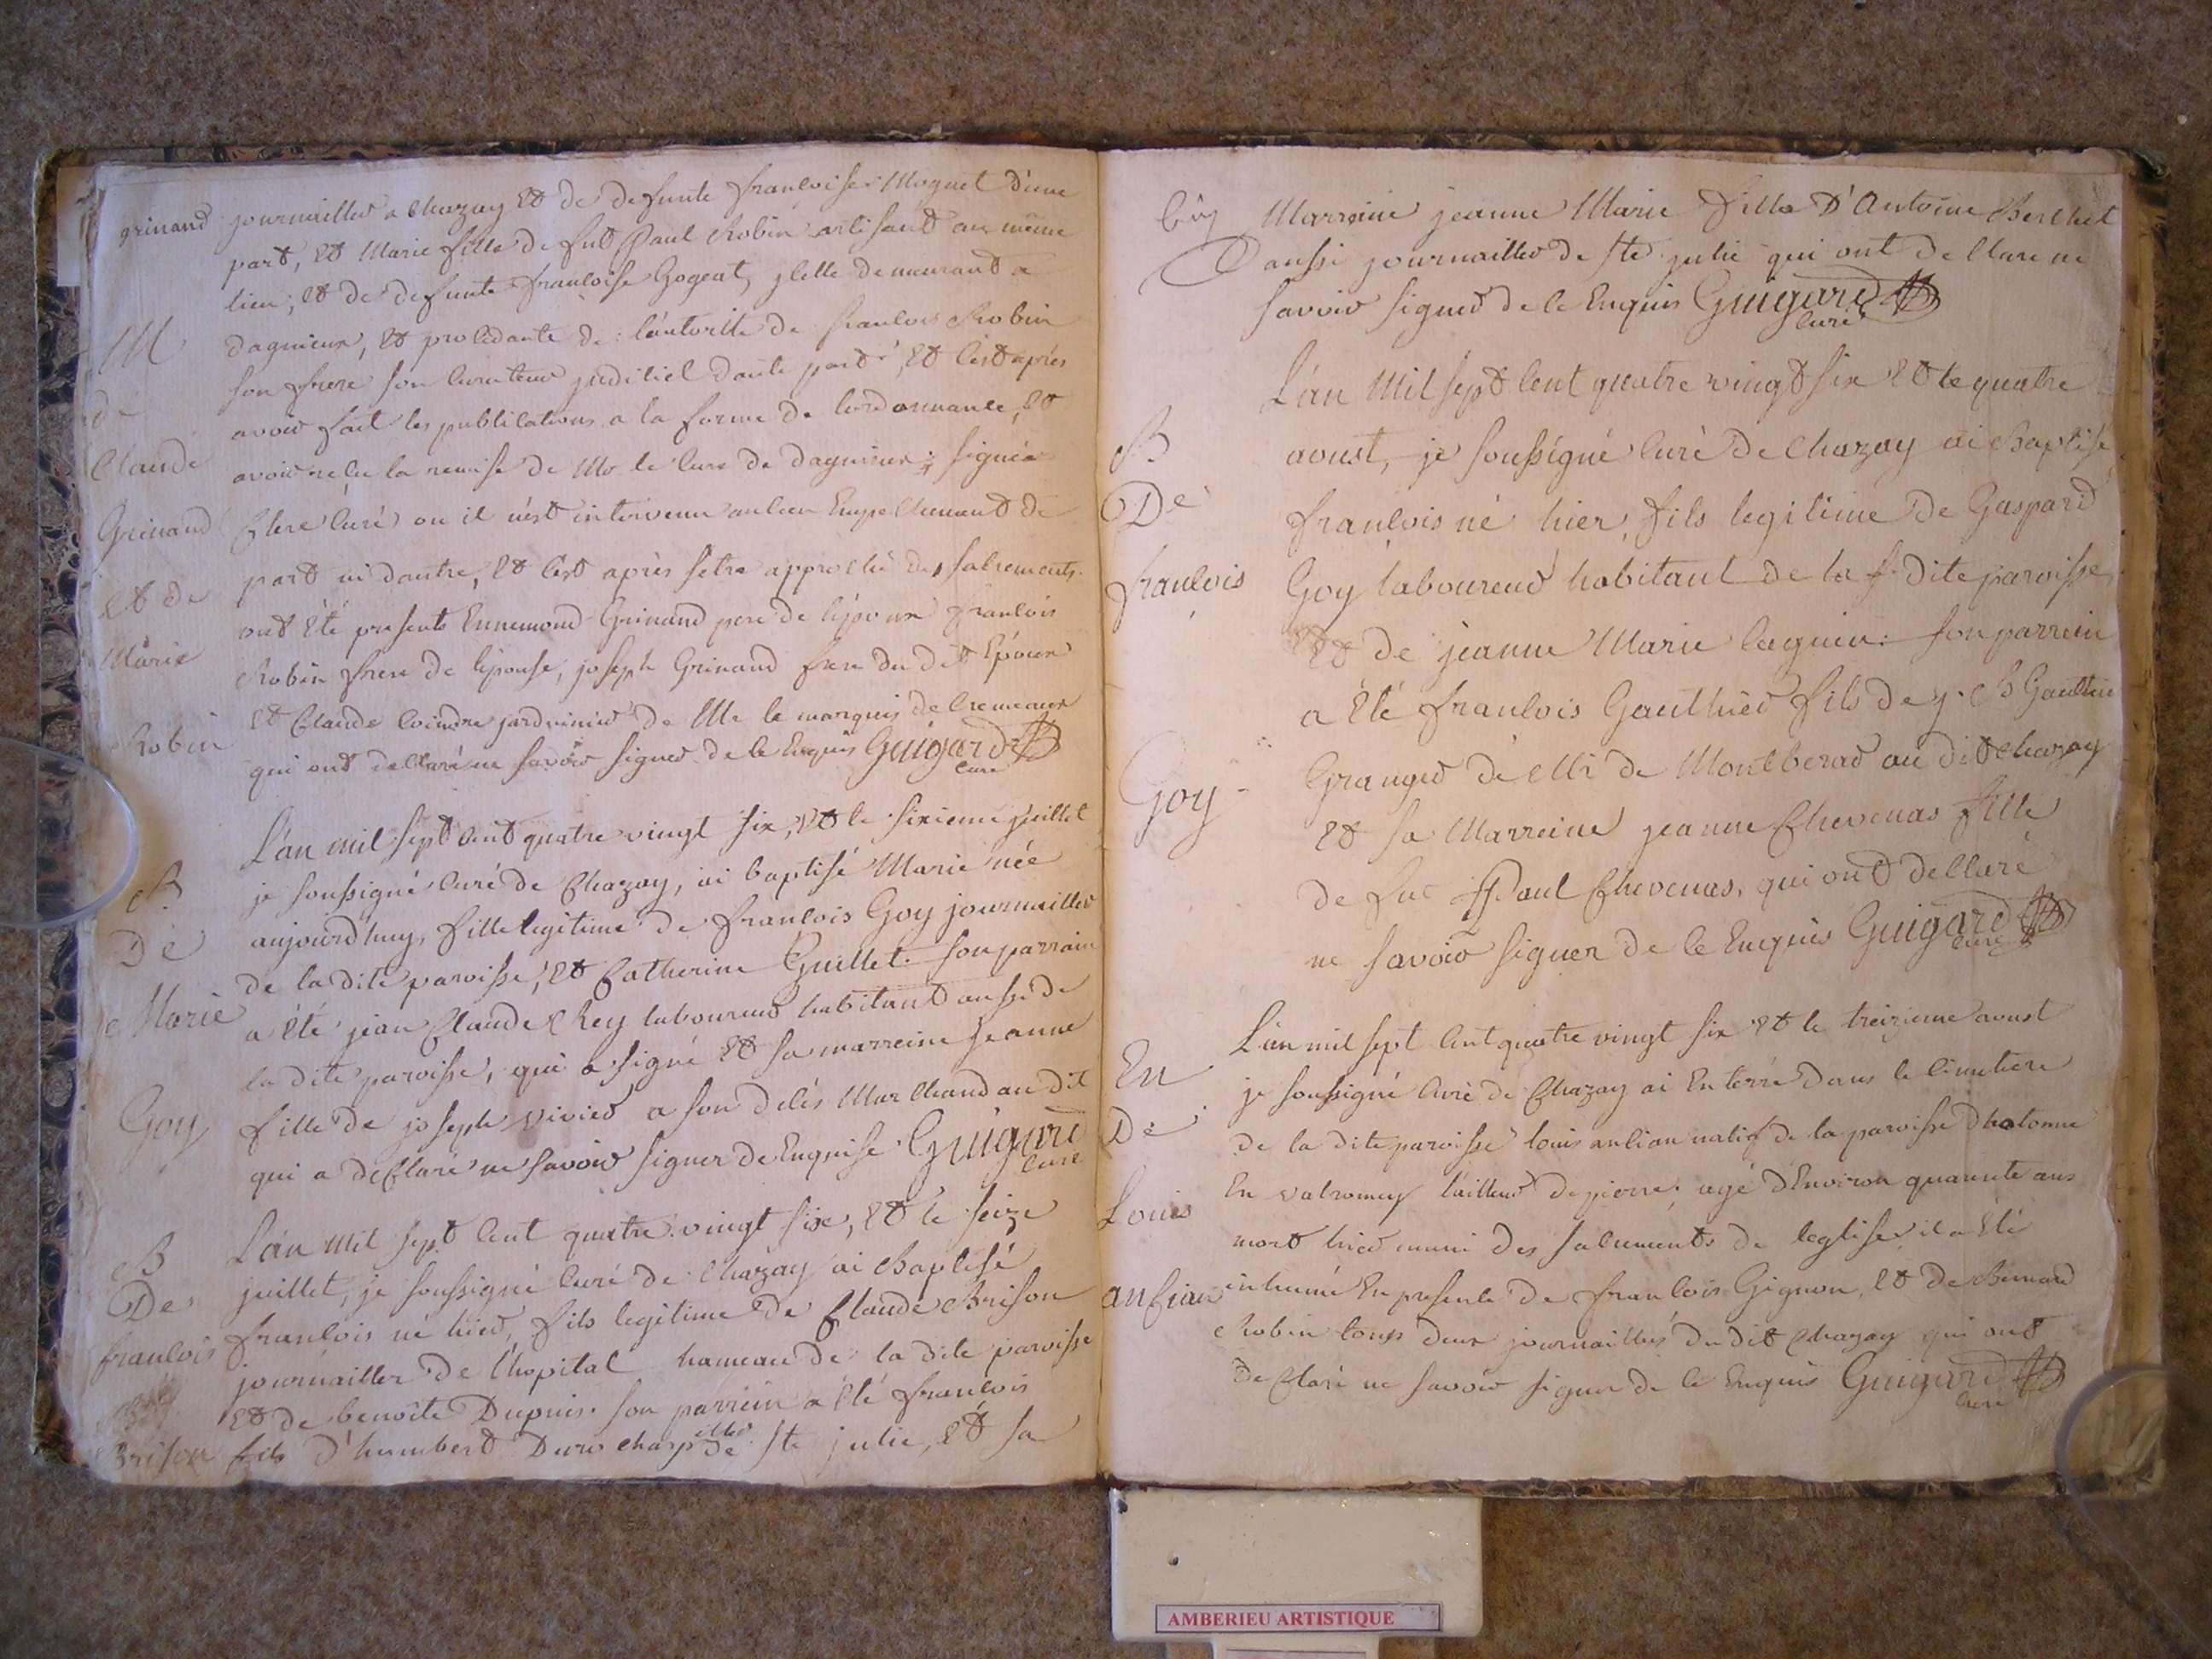 grinand journaillier a Chazay Et de defunte francoise Moguet d'une
part, Et Marie fille de fut Paul Robin artisant au même
lieu; et de defunte francoise Gogeat, ylelle demeurant a
M dagnieux, Et procedante de l'autorité de francois Robin
son frere son curateur judiciel d'autre part; Et c'est après
de avoir fait les publications a la forme de lordonnance, Et
Claude avoir reçu la remise de Mr le curé de dagnieux; signée
Grinand curé ou il n'est intervenu aucun Empechement de
part ni dautre, Et c'est après s'etre approché des sacrements.
et de ont Eté presents Ennemond Grinand pere de l'epoux francois
Marie Robin frere de l'epouse, joseph Grinand frere du dit Epoux
Et Claude Coindre jardinier de Mr le marquis de Cremeaux
Robin qui ont declaré ne savoir signer de ce Enquis Guigard
curé
L'an mil sept cent quatre vingt six, Et le sixieme juillet
B je soussigné curé de Chazay, ai baptisé Marie née
De aujourdhuy, fille legitime de francois Goy journaillier
de la dite paroisse, Et Catherine Guillet. son parrain
Marie a été jean Claude Rey laboureur habitant aussi de
la dite paroisse, qui a signé Et sa marreine jeanne
Goy fille de joseph vivier a son delés Marchand au dit
qui a declaré ne savoir signer de Enquise Guigard
curé
L'an mil sept cent quatre vingt six, Et le seize
B juillet, je soussigné curé de Chazay ai Baptisé
De francois né hier, fils legitime de Claude Brison
francois journaillier de l'hopital hameau de la dite paroisse
Et de benoite Dupuis. son parrein a été francois
Brison fils d'humbert Duro charp de Ste julie, Et sa
Marreine jeanne Marie fille D'Antoine Berthet
aussi journaillier de Ste julie qui ont declaré ne
savoir signer de ce Enquis Guigard
curé
L'an Mil sept cent quatre vingt six Et le quatre
B aoust, je soussigné curé de Chazay ai Baptisé
De francois né hier, fils legitime de Gaspard
francois Goy laboureur habitant de la s. dite paroisse
Et de jeanne Marie laguin: son parrein
a été francois Gauthier fils de j. B Gauthier
Goy Granger de Mr de Montberar au dit Chazay
Et sa Marreine jeanne Chevenas fille
de fut Paul Chevenas, qui ont declaré
ne savoir signer de ce Enquis Guigard
curé
L'an mil sept cent quatre vingt six Et le treizieme aoust
En je soussigné curé de Chazay ai Enterré dans le cimetiere
De de la dite paroisse louis ancian natif de la paroisse dhotonne
En valromey tailleur de pierre, agé d'Environ quarante ans
Louis mort hier muni des sacrements de leglise il a Eté
ancian inhumé En presence de francois Gignon, Et de Bernard
Robin tous deux journailliers du dit Chazay qui ont
declaré ne savoir signer de ce Enquis Guigard
curé
AMBERIEU ARTISTIQUE